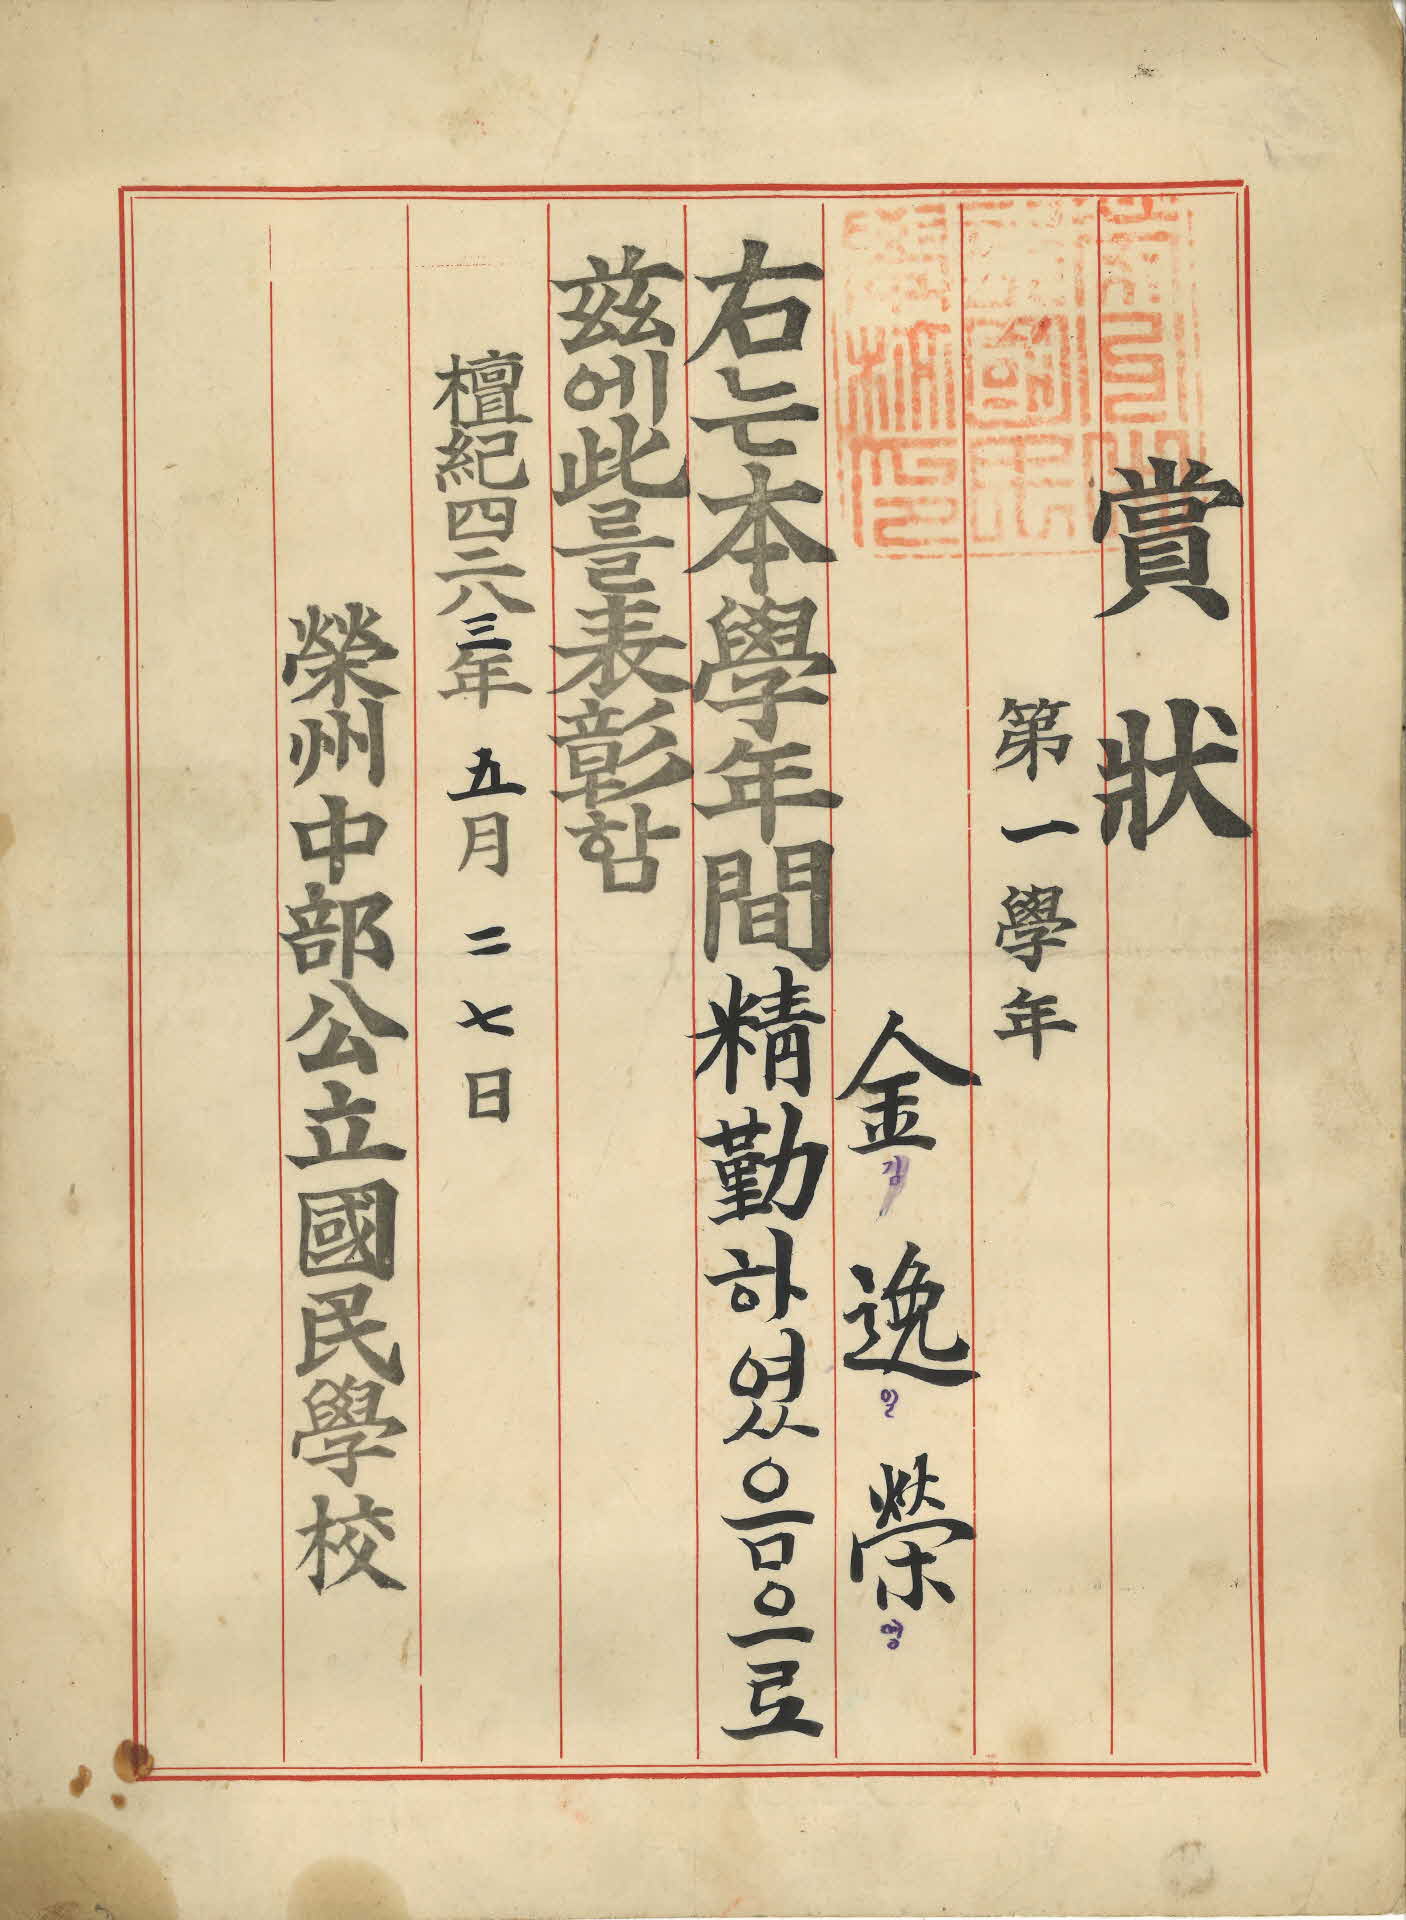 賞狀
第一學年
金逸榮
김 일 영
右는本學年間精勤하였음으로
玆에此를表彰함
檀紀四二八三年 五月 二七日
榮州中部公立國民學校